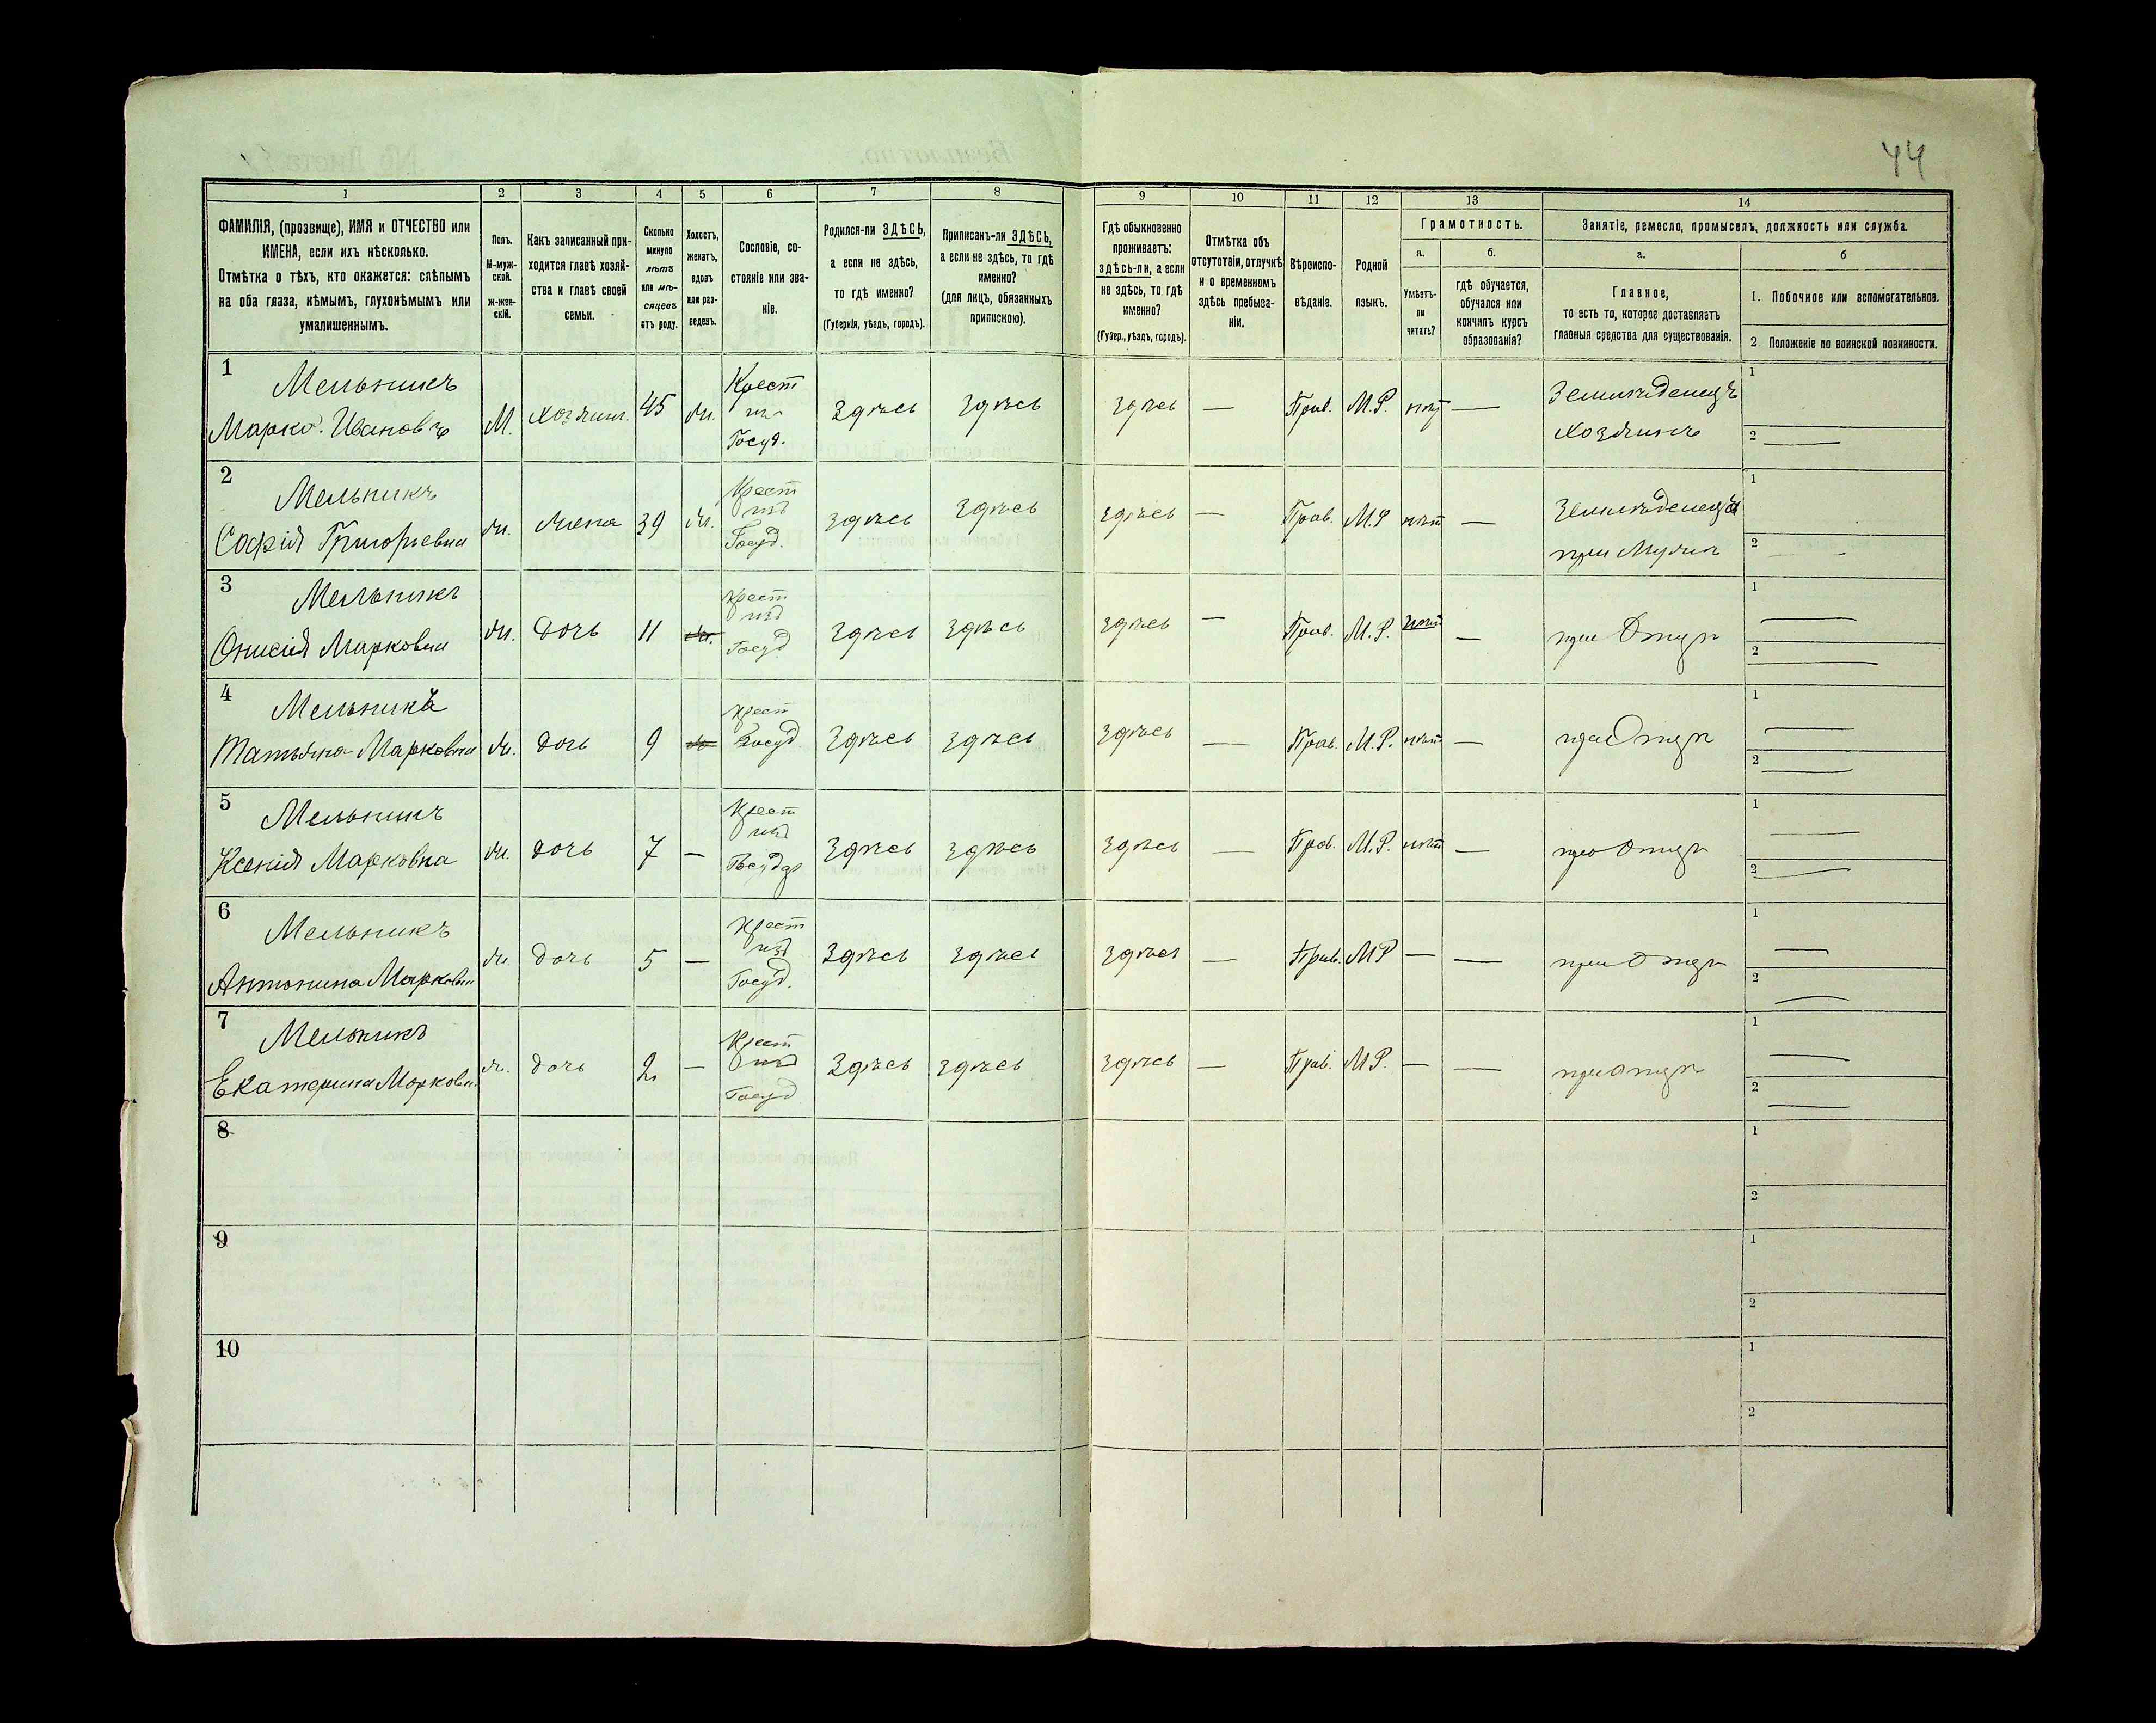 44
1 2 3 4 5 6 7 8 9 10 11 12 13 14
ФАМИЛІЯ, (прозвище), ИМЯ и ОТЧЕСТВО или
ИМЕНА, если ихъ нѣсколько.
Отмѣтка о тѣхъ, кто окажется: слѣпымъ
на оба глаза, нѣмымъ, глухонѣмымъ или
умалишеннымъ.
Полъ.
М-муж-
ской.
ж-жен-
скій.
Какъ записанный при-
ходится главѣ хозяй-
ства и главѣ своей
семьи.
Сколько
минуло
лѣтъ
или мѣ-
сяцевъ
отъ роду.
Холостъ,
женатъ,
вдовъ
или раз-
веденъ.
Сословіе, со-
стояніе или зва-
ніе.
Родился-ли ЗДѢСЬ,
а если не здѣсь,
то гдѣ именно?
(Губернія, уѣздъ, городъ).
Приписанъ-ли ЗДѢСЬ,
а если не здѣсь, то гдѣ
именно?
(для лицъ, обязанныхъ
припискою).
Гдѣ обыкновенно
проживаетъ:
здѣсь-ли, а если
не здѣсь, то гдѣ
именно?
(Губер., уѣздъ, городъ).
Отмѣтка объ
отсутствіи, отлучкѣ
и о временномъ
здѣсь пребыва-
ніи.
Вѣроиспо-
вѣданіе.
Родной
языкъ.
Грамотность.
а.
Умѣетъ-
ли
читать?
б.
гдѣ обучается,
обучался или
кончилъ курсъ
образованія?
Занятіе, ремесло, промыселъ, должность или служба.
а.
Главное,
то есть то, которое доставляетъ
главныя средства для существованія.
б
1. Побочное или вспомогательное.
2. Положеніе по воинской повинности.
1
Мельникъ
Марко Ивановъ
М. хозяин. 45 ж.
Крест
из
Госуд.
Здѣсь Здѣсь Здѣсь — Прав. М.Р. нѣт —
Земледелецъ
хозяинъ
1
2 —
2
Мельникъ
Софія Григорьевна
ж. жена 39 ж.
Крест
изъ
Госуд.
здѣсь здѣсь здѣсь — Прав. М.Р нѣт —
Земледелецъ
при Мужѣ
1
2 —
3
Мельникъ
Онисія Марковна
ж. дочь 11
Крест
изъ
Госуд
Здѣсь Здѣсь Здѣсь — Прав. М.Р. нѣт —
при Отцѣ
1 —
2 —
4
Мельникъ
Татьяна Марковна
ж. дочь 9
Крест
Госуд.
Здѣсь здѣсь здѣсь — Прав. М.Р. нѣт —
при Отцѣ
1 —
2 —
5
Мельникъ
Ксенія Марковна
ж. дочь 7 —
Крест
изъ
Государ
Здѣсь здѣсь здѣсь — Прав. М.Р. нѣт —
при Отцѣ
1 —
2 —
6
Мельникъ
Антонина Марковна
ж дочь 5 —
Крест
изъ
Госуд.
Здѣсь здѣсь здѣсь — Прав. МР — —
при Отцѣ
1 —
2 —
7
Мельникъ
Екатерина Марковн.
ж. дочь 2 —
Крест
изъ
Госуд
Здѣсь здѣсь здѣсь — Прав. МР. — —
при отцѣ
1 —
2 —
8
1
2
9
1
2
10
1
2